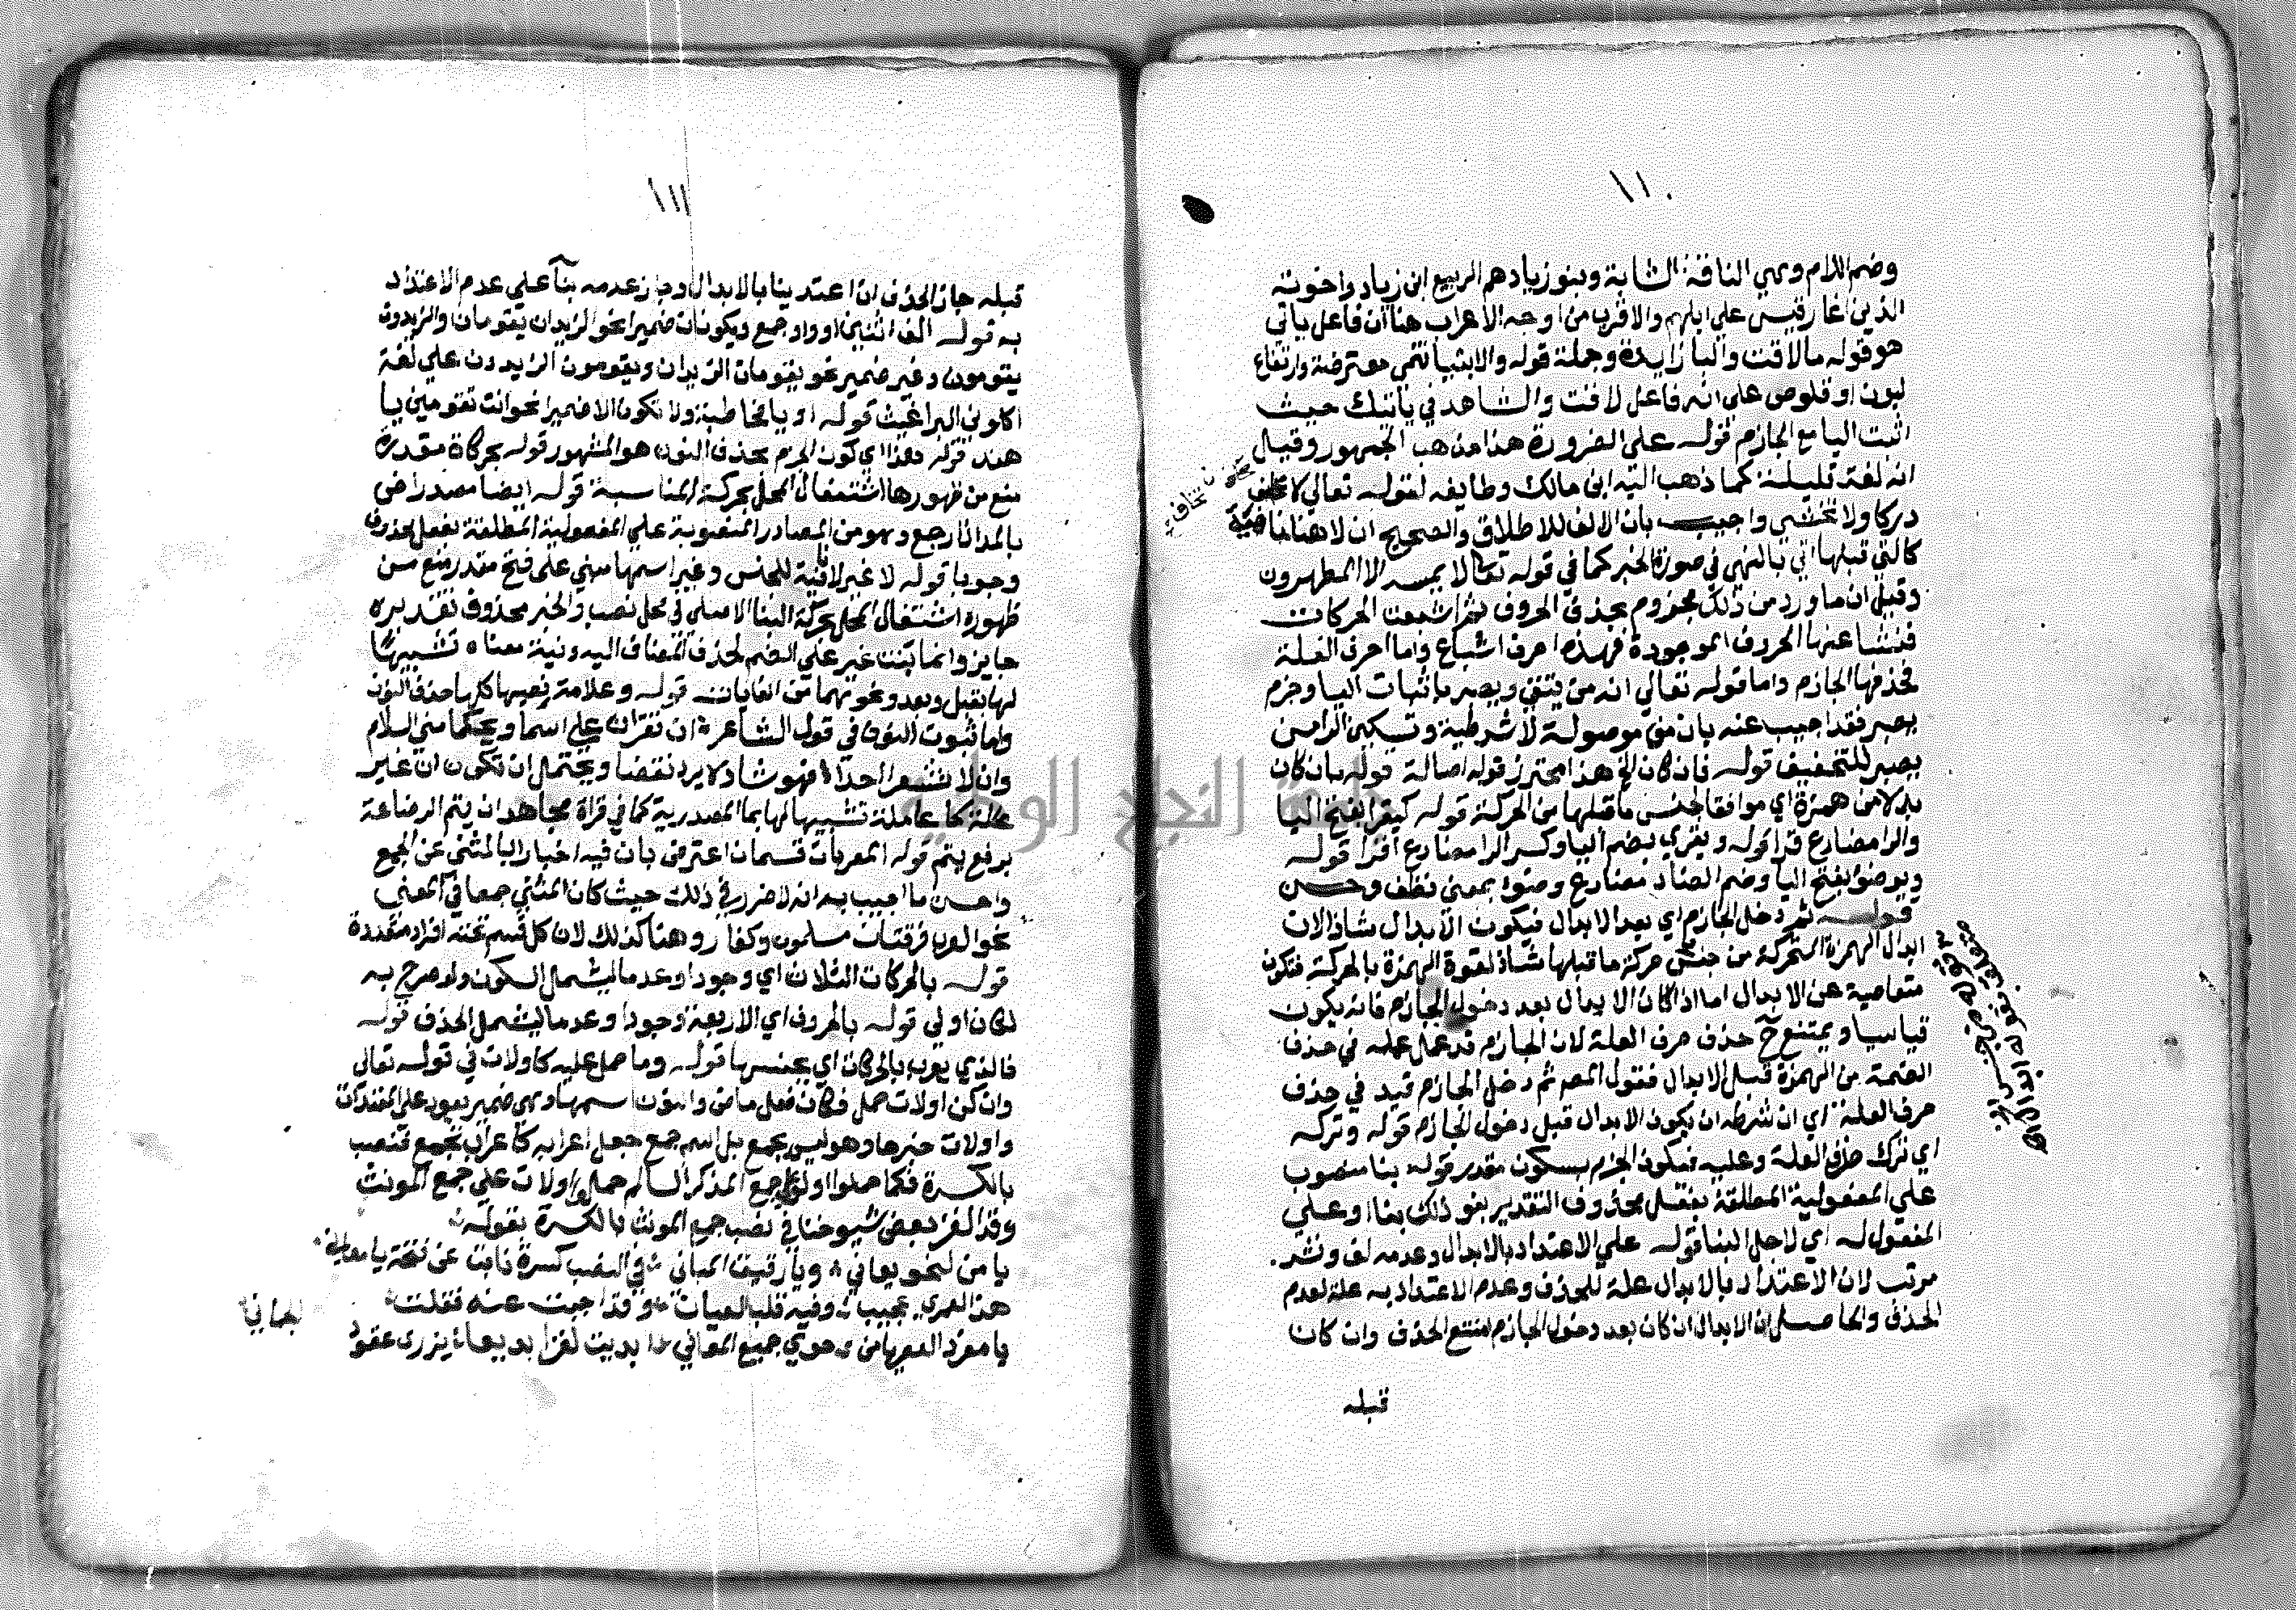 ١١٠
وضم اللام وهي الناقة الشابة وبنو زياد هم الربيع ابن زياد واخوته
الذين اغار قيس علي ابلهم والاقرب من اوجه الاعراب هنا ان فاعل ياتي
هو قوله مالاقت والبا زايدة وجملة قوله والانبيا تنمي معترضة وارتفاع
لبون او قلوص على انه فاعل لاقت والشاهد في ياتيك حيث
اثبت اليا مع الجازم قوله على الضرورة هذا مذهب الجمهور وقيل
انه لغة قليلة كما ذهب اليه ابن مالك وطايفه لقوله تعالي لا تخف
دركا ولا تخشى واجيب بان الالف للاطلاق والصحيح ان لا هنا نافية
كالتي قبلها اتي بالنهي في صورة الخبر كما في قوله تعالا لا يمسه الا المطهرون
وقيل ان ما ورد من ذلك مجزوم بحذف الحروف ثم اشبعت الحركات
فنشا عنها الحروف الموجودة فهذه احرف اشباع واما احرف العلة
فحذفها الجازم واما قوله تعالي انه من يتقي ويصبر باثبات اليا وجزم
يصبر فقد اجيب عنه بان من موصولة لا شرطية وتسكين الرا من
يصبر للتخفيف قوله فان كان الخ هذا محترز قوله اصالة قوله بان كان
بدلا من همزة اي موافقا لجنس ما قبلها من الحركة قوله كيقرا بفتح اليا
والرا مضارع قرا قوله ويقري بضم اليا وكسر الرا مضارع اقرا قوله
ويوضوا بفتح اليا وضم الضاد مضارع وضوا بمعني نظف وحسن
قوله ثم دخل الجازم اي بعد الابدال فيكون الابدال شاذ الان
ابدال الهمزة المتحركة من جنس حركة ما قبلها شاذ لقوة الهمزة بالحركة فتكون
متعاصية عن الابدال اما اذا كان الابدال بعد دخول الجازم فانه يكون
قياسيا ويمتنع ح حذف حرف العلة لان الجازم قد عمل عمله في حذف
الضمة من الهمزة قبل الابدال فقول المصم ثم دخل الجازم قيد في حذف
حرف العلة اي ان شرطه ان يكون الابدال قبل دخول الجازم قوله وتركه
اي ترك حذف العلة وعليه فيكون الجزم بسكون مقدر قوله بنا منصوب
علي المفعولية المطلقة بفعل محذوف التقدير بنو ذلك بناا وعلي
المفعول له اي لاجل البنا قوله علي الاعتداد بالابدال وعدمه لف ونشر
مرتب لان الاعتداد بالابدال علة للحذف وعدم الاعتداد به علة لعدم
الحذف والحاصل ان الابدال ان كان بعد دخول الجازم امتنع الحذف وان كان
قبله
١١١
قبله جاز الحذف ان اعتدينا بالابدال وجاز عدمه بنآ علي عدم الاعتداد
به قوله الف اثنين او واو جمع ويكونان ضميرا نحو الزيدان يقومان والزيدون
يقومون وغير ضمير نحو يقومان الزيدان ويقومون الزيدون علي لغة
اكلوني البراغيث قوله او يا مخاطبة ولا تكون الا ضميرا نحو انت تقومين يا
هند قوله وهذا اي كون الجزم بحذف النون هو المشهور قوله بحركاة مقدرة
منع من ظهورها اشتغال المحل بحركة المناسبة قوله ايضا مصدر اض
بالمد اذا رجع وهو من المصادر المنصوبة علي المفعولية المطلقة بفعل محذوف
وجوبا قوله لا غير لا نافية للجنس وغير اسمها مبني على فتح مقدر منع من
ظهوره اشتغال المحل بحركة البنا الاصلي في محل نصب والخبر محذوف تقديره
جايز وانما بنت غير علي الضم لحذف المضاف اليه ونية معناه تشبيها
لها بقبل وبعد ونحوهما من الغايات قوله وعلامة نصبها كلها حذف النون
واما ثبوت النون في قول الشاعر ان تقران علي اسما ويحكما مني السلام
وان لا تشعرا احدا فهو شاد لا يرد نقضا ويحتمل ان تكون ان غير
عاملة كما عاملة تشبيها لها بما المصدرية كما في قراة مجاهد ان يتم الرضاعة
برفع يتم قوله المعربات قسمان اعترض بان فيه اخبارا بالمثني عن الجمع
واحسن ما اجيب به انه لا ضرر في ذلك حيث كان المثني جمعا في المعنى
نحو العرب فرقتان مسلمون وكفار وهنا كذلك لان كل قسم تحته افراد متعددة
قوله بالحركات الثلاث اي وجودا وعدما ليشمل السكون ولو صرح به
لكان اولي قوله بالحروف اي الاربعة وجودا وعدما ليشمل الحذف قوله
فالذي يعرب بالحركات اي بجنسها قوله وما حمل عليه كاولات في قوله تعالي
وان كن اولات حمل فكان فعل ماض والنون اسمها وهي ضمير يعود علي المعتدات
واولات خبرها وهو ليس بجمع بل اسم جمع جعل اعرابه كاعراب الجمع فنصب
بالكسرة فكما حملوا اولوا علي جمع المذكر السالم حملوا اولات علي جمع المونث
وقد الغز بعض شيوخنا في نصب جمع المونث بالكسرة بقوله
يا من لنحو يعاني ويا رقيق المباني في النصب كسرة نابت عن فتحة يا معاني
هذا لعمري عجيب وفيه قلب العيان وقد اجبت عنه فقلت
يا مفرد العصر يا من حوي جميع المعاني ابديت لغزا بديعا يزري عقود
الجماني